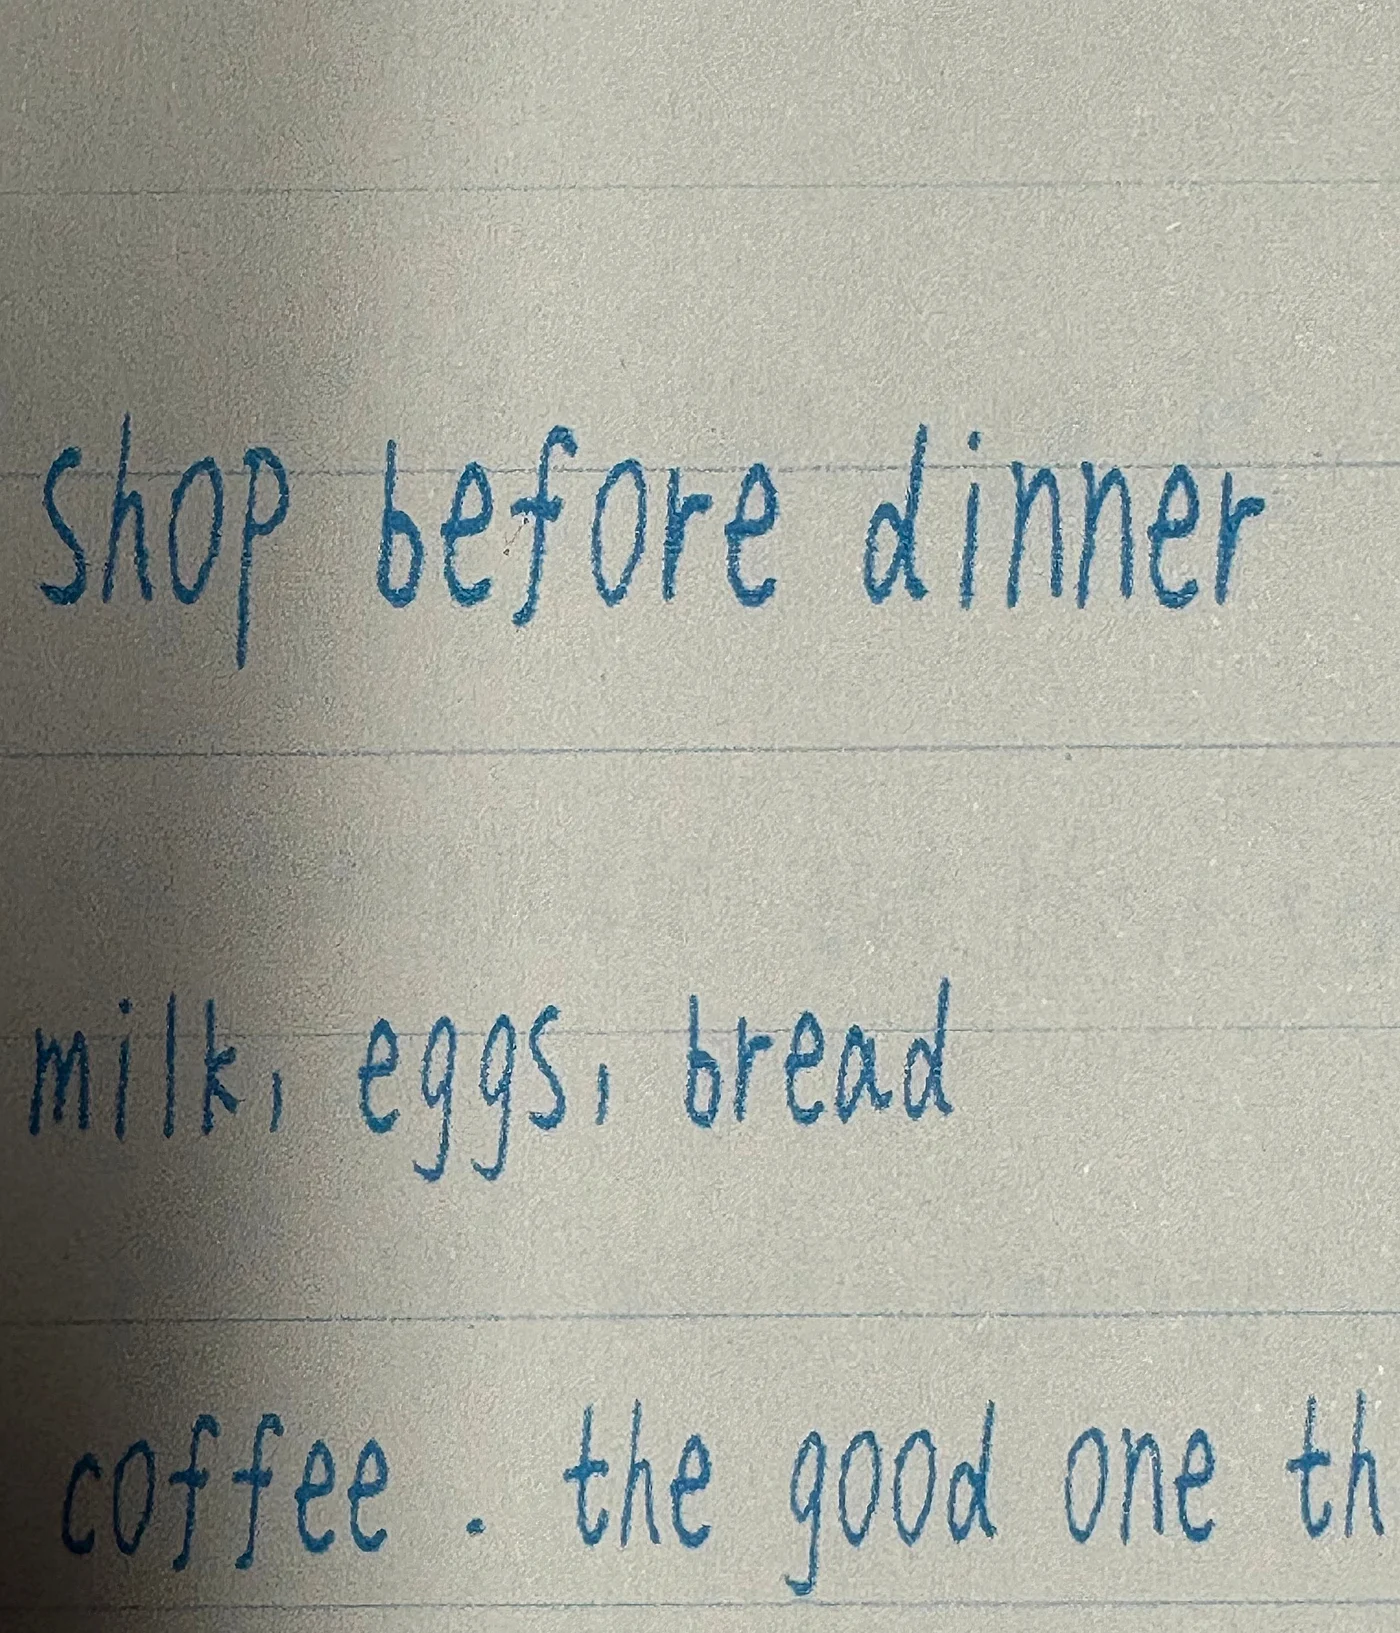 shop before dinner
milk, eggs, bread
coffee. the good one